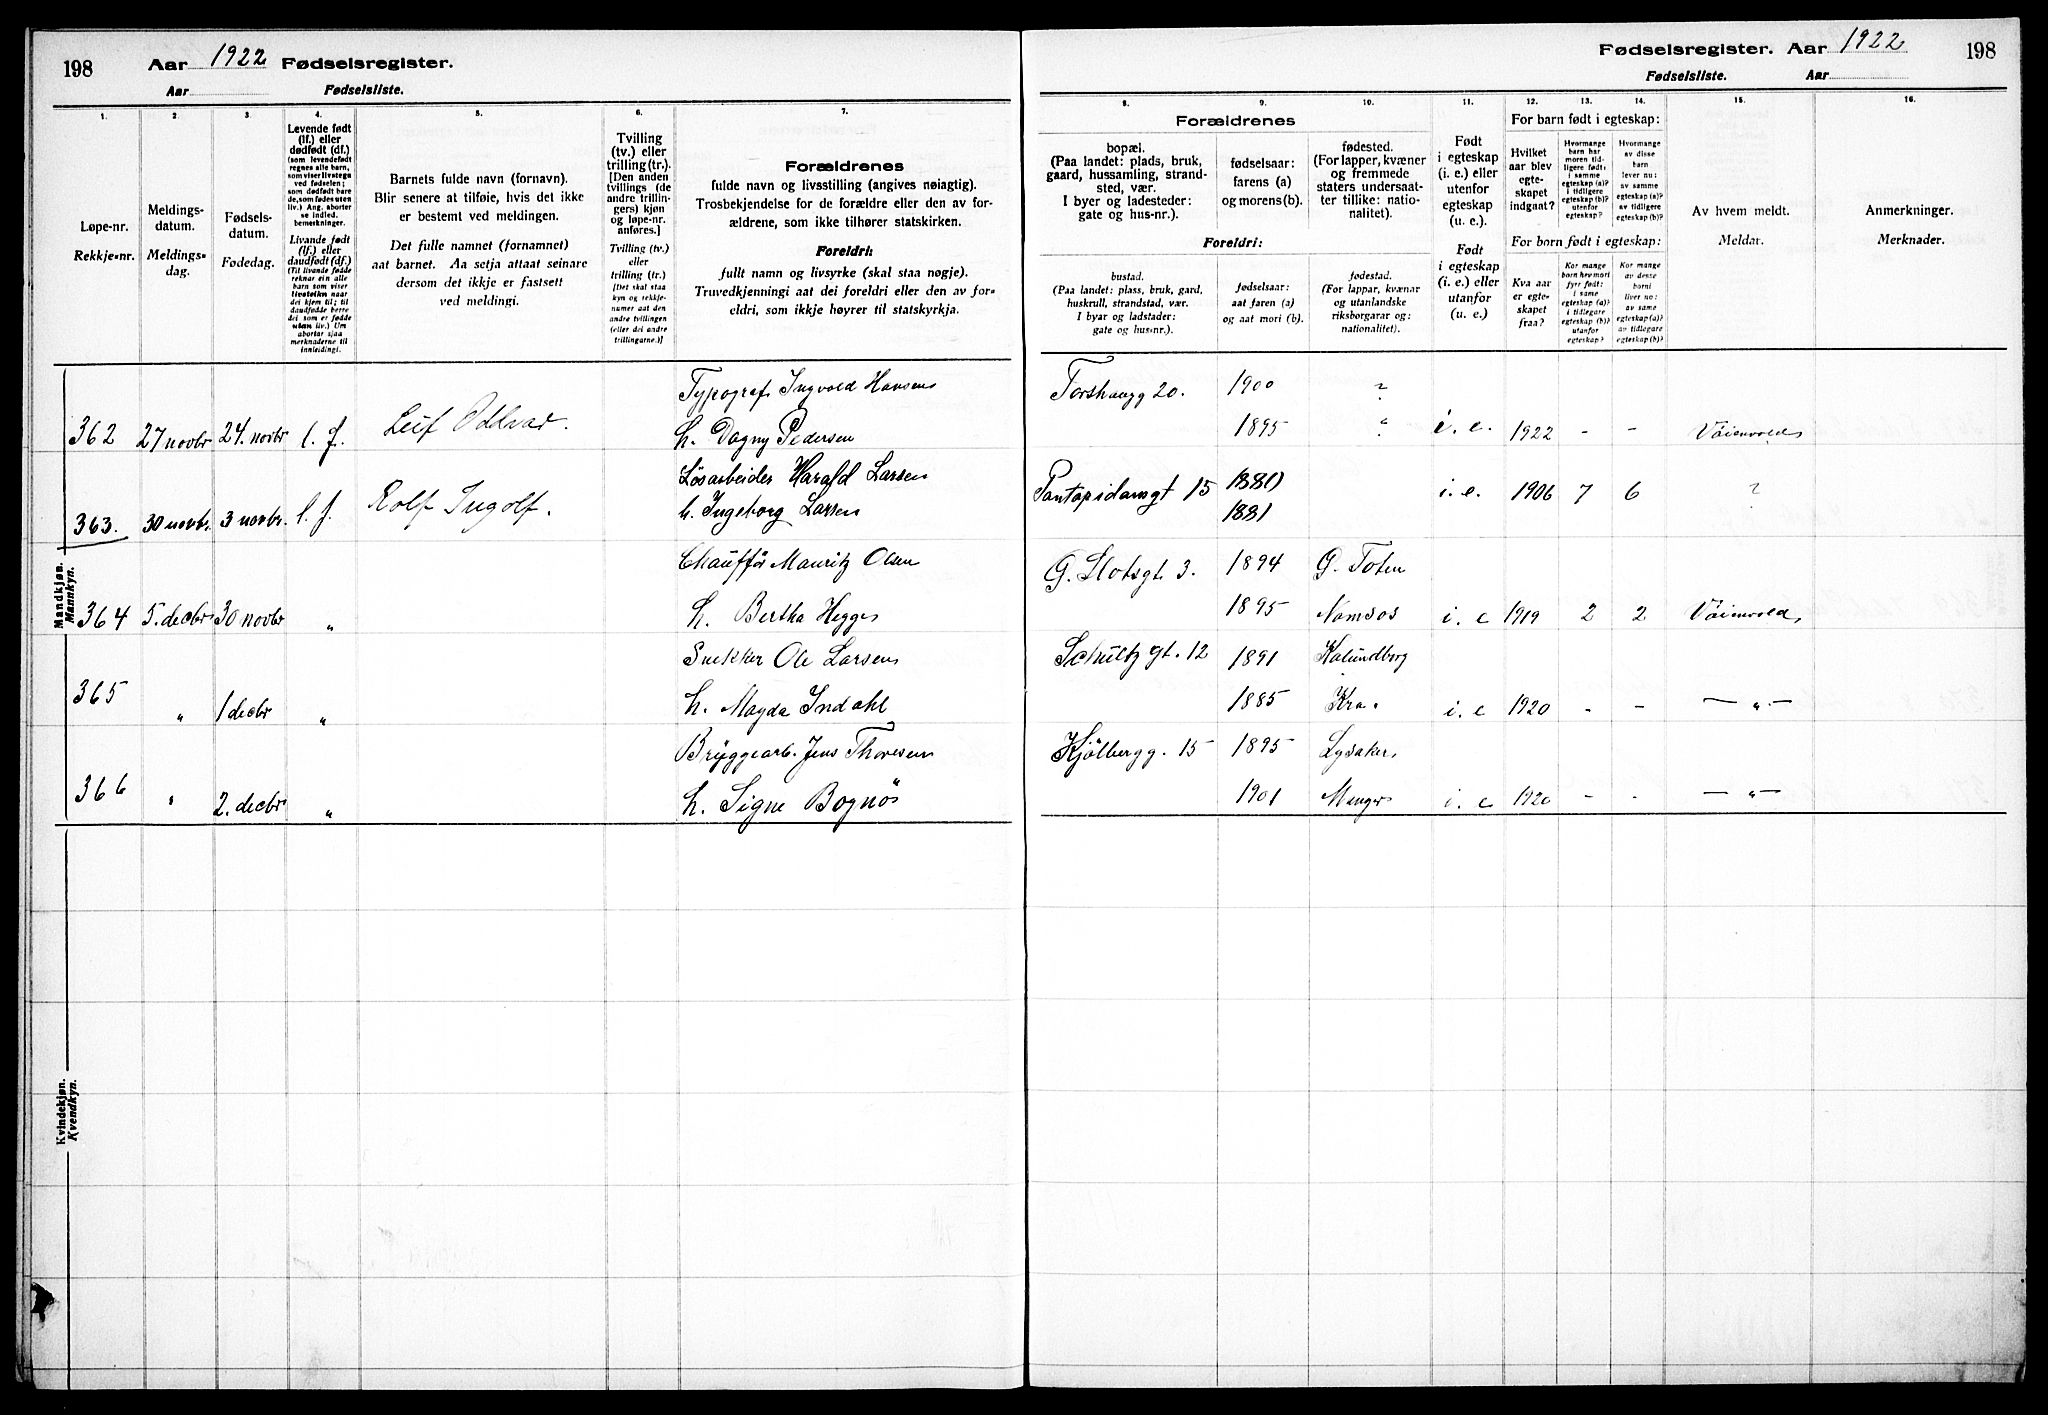 198
Aar 1922 Fødselsregister.
Aar Fødselsliste.
1.
2.
3.
4.
5.
6.
7.
Løpe-nr.
Rekkje-nr.
Meldings-
datum.
Meldings-
dag.
Fødsels-
datum.
Fødedag.
Levende født
(lf.) eller
dødfødt (df.)
(som levendefødt
regnes alle barn,
som viser livstegn
ved fødselen;
som dødfødt bare
de, som fødes uten
liv.) Ang. aborter
se indled.
bemerkninger.
Livande født
(lf.) eller
daudfødt (df.)
(Til livande fødde
reknar ein alle
barn som viser
livsteikn naar
dei kjem til; til
daudfødde berre
dei som er fødde
utan liv.) Um
abortar sjaa
merknaderne til
innleidingi.
Barnets fulde navn (fornavn).
Blir senere at tilføie, hvis det ikke
er bestemt ved meldingen.
Det fulle namnet (fornamnet)
aat barnet. Aa setja attaat seinare
dersom det ikkje er fastsett
ved meldingi.
Tvilling
(tv.) eller
trilling (tr.).
[Den anden
tvillings (de
andre trillin-
gers) kjøn
og løpe-nr.
anføres.]
Tvilling (tv.)
eller
trilling (tr.)
[Det skal staa
kyn og rekkje-
numer aat den
andre tvillingen
(eller dei andre
trillingarne.)]
Forældrenes
fulde navn og livsstilling (angives nøiagtig).
Trosbekjendelse for de forældre eller den av for-
ældrene, som ikke tilhører statskirken.
Foreldri:
fullt namn og livsyrke (skal staa nøgje).
Truvedkjenningi aat dei foreldri eller den av for-
eldri, som ikkje høyrer til statskyrkja.
Mandkjøn.
Mannkyn.
362 27 novbr 24. novbr l. f. Leif Oddvar. Typograf Ingvald Hansen
h. Dagny Pedersen
363. 30 novbr. 3 novbr. l. f. Rolf Ingolf. Løsarbeider Harald Larsen
h. Ingeborg Larsen
364 5. decbr 30 novbr " Chauffør Mauritz Olsen
h. Bertha Hegge
365 " 1 decbr " Snekker Ole Larsen
h. Magda Indahl
366 " 2. decbr " Bryggearb. Jens Thoresen
h. Signe Bognøs
Kvindekjøn.
Kvendkyn.
Fødselsregister. Aar 1922 198
Fødselsliste. Aar
8.
9.
10.
11.
12.
13.
14.
15.
16.
Forældrenes
bopæl.
(Paa landet: plads, bruk,
gaard, hussamling, strand-
sted, vær.
I byer og ladesteder:
gate og hus-nr.).
fødselsaar:
farens (a)
og morens (b).
fødested.
(For lapper, kvæner
og fremmede
staters undersaat-
ter tillike: natio-
nalitet).
Foreldri:
bustad.
(Paa landet: plass, bruk, gard,
huskrull, strandstad, vær.
I byar og ladstader:
gate og hus-nr.).
fødselsaar:
aat faren (a)
og aat mori (b).
fødestad.
(For lappar, kvænar
og utanlandske
riksborgarar og:
nationalitet).
Født
i egteskap
(i. e.) eller
utenfor
egteskap
(u. e.).
Født
i egteskap
(i. e.) eller
utanfor
(u. e.)
For barn født i egteskap:
Hvilket
aar blev
egte-
skapet
indgaat?
Hvormange
barn har
moren tid-
ligere født:
i samme
egteskap (a)?
i tidligere
egteskap (b)?
utenfor
egteskap?
Hvormange
av disse
barn
lever nu:
av samme
egteskap (a)?
av tidligere
egteskap (b)?
For born født i egteskap:
Kva aar
er egte-
skapet
fraa?
Kor mange
born hev mori
fyrr født:
i same
egteskap (a)?
i tidlegare
egteskap (b)?
utanfor
egteskap?
Kor mange
av desse
borni
liver no:
av same
egteskap (a)?
av tidlegare
egteskap (b)?
Av hvem meldt.
Meldar.
Anmerkninger.
Merknader.
1900 ?
1895 " i. e. 1922 - -
15 1881)
1881 i. e. 1906 7 6 ?
G. Slotsgt 3. 1894 G. Toten
1895 Namsos i. e 1919 2 2
Schultz gt. 12 1891 Kalundborg
1885 Kra. i. e 1920 - - — " —
Kjølbergg. 15 1895 Lysaker
1901 Manger i. e 1920 - - — " —